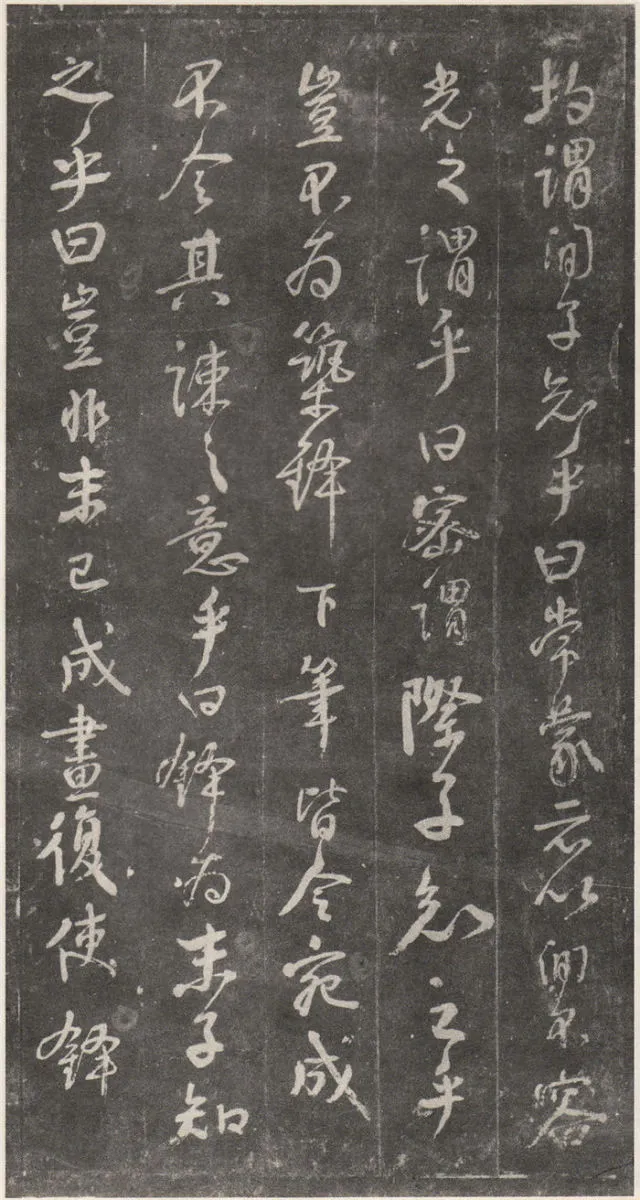 均谓间子知乎曰常蒙示以间不容
光之谓乎曰密谓际子知之乎
豈不为築鋒下筆皆令宛成
不令其疎之意乎曰鋒为末子知
之乎曰豈非末已成畫復使鋒